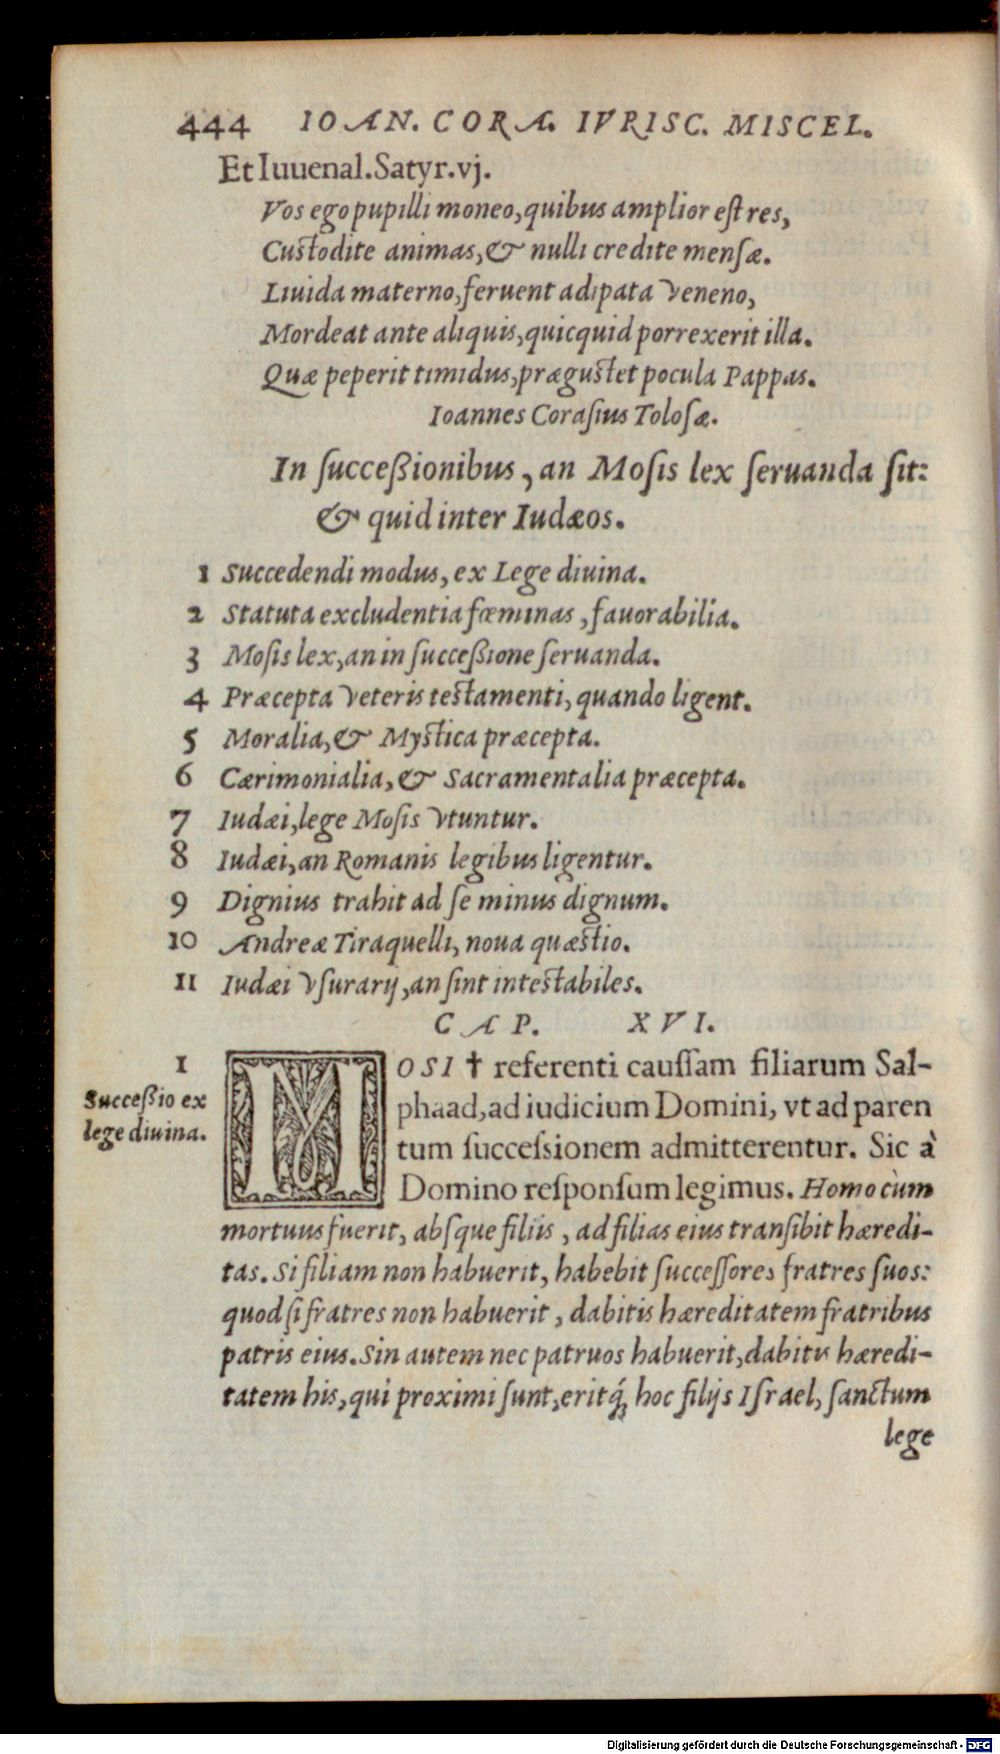 444 IOAN. CORA. IVRISC. MISCEL.
Et Iuuenal. Satyr. vj.
Vos ego pupilli moneo, quibus amplior est res,
Custodite animas, & nulli credite mensæ.
Liuida materno, feruent adipata veneno,
Mordeat ante aliquis, quicquid porrexerit illa.
Quæ peperit timidus, prægustet pocula Pappas.
Ioannes Corasius Tolosæ.
In succeßionibus, an Mosis lex seruanda sit:
& quid inter Iudæos.
1 Succedendi modus, ex Lege diuina.
2 Statuta excludentia fœminas, fauorabilia.
3 Mosis lex, an in succeßione seruanda.
4 Præcepta veteris testamenti, quando ligent.
5 Moralia, & Mystica præcepta.
6 Cærimonialia, & Sacramentalia præcepta.
7 Iudæi, lege Mosis vtuntur.
8 Iudæi, an Romanis legibus ligentur.
9 Dignius trahit ad se minus dignum.
10 Andreæ Tiraquelli, noua quæstio.
11 Iudæi vsurarij, an sint intestabiles.
CAP. XVI.
1
Succeßio ex
lege diuina.
MOSI † referenti caussam filiarum Sal-
phaad, ad iudicium Domini, vt ad paren
tum successionem admitterentur. Sic à
Domino responsum legimus. Homo cùm
mortuus fuerit, absque filiis, ad filias eius transibit hæredi-
tas. Si filiam non habuerit, habebit successores fratres suos:
quod si fratres non habuerit, dabitis hæreditatem fratribus
patris eius. Sin autem nec patruos habuerit, dabitis hæredi-
tatem his, qui proximi sunt, eritq́; hoc filijs Israel, sanctum
lege
Digitalisierung gefördert durch die Deutsche Forschungsgemeinschaft - DFG